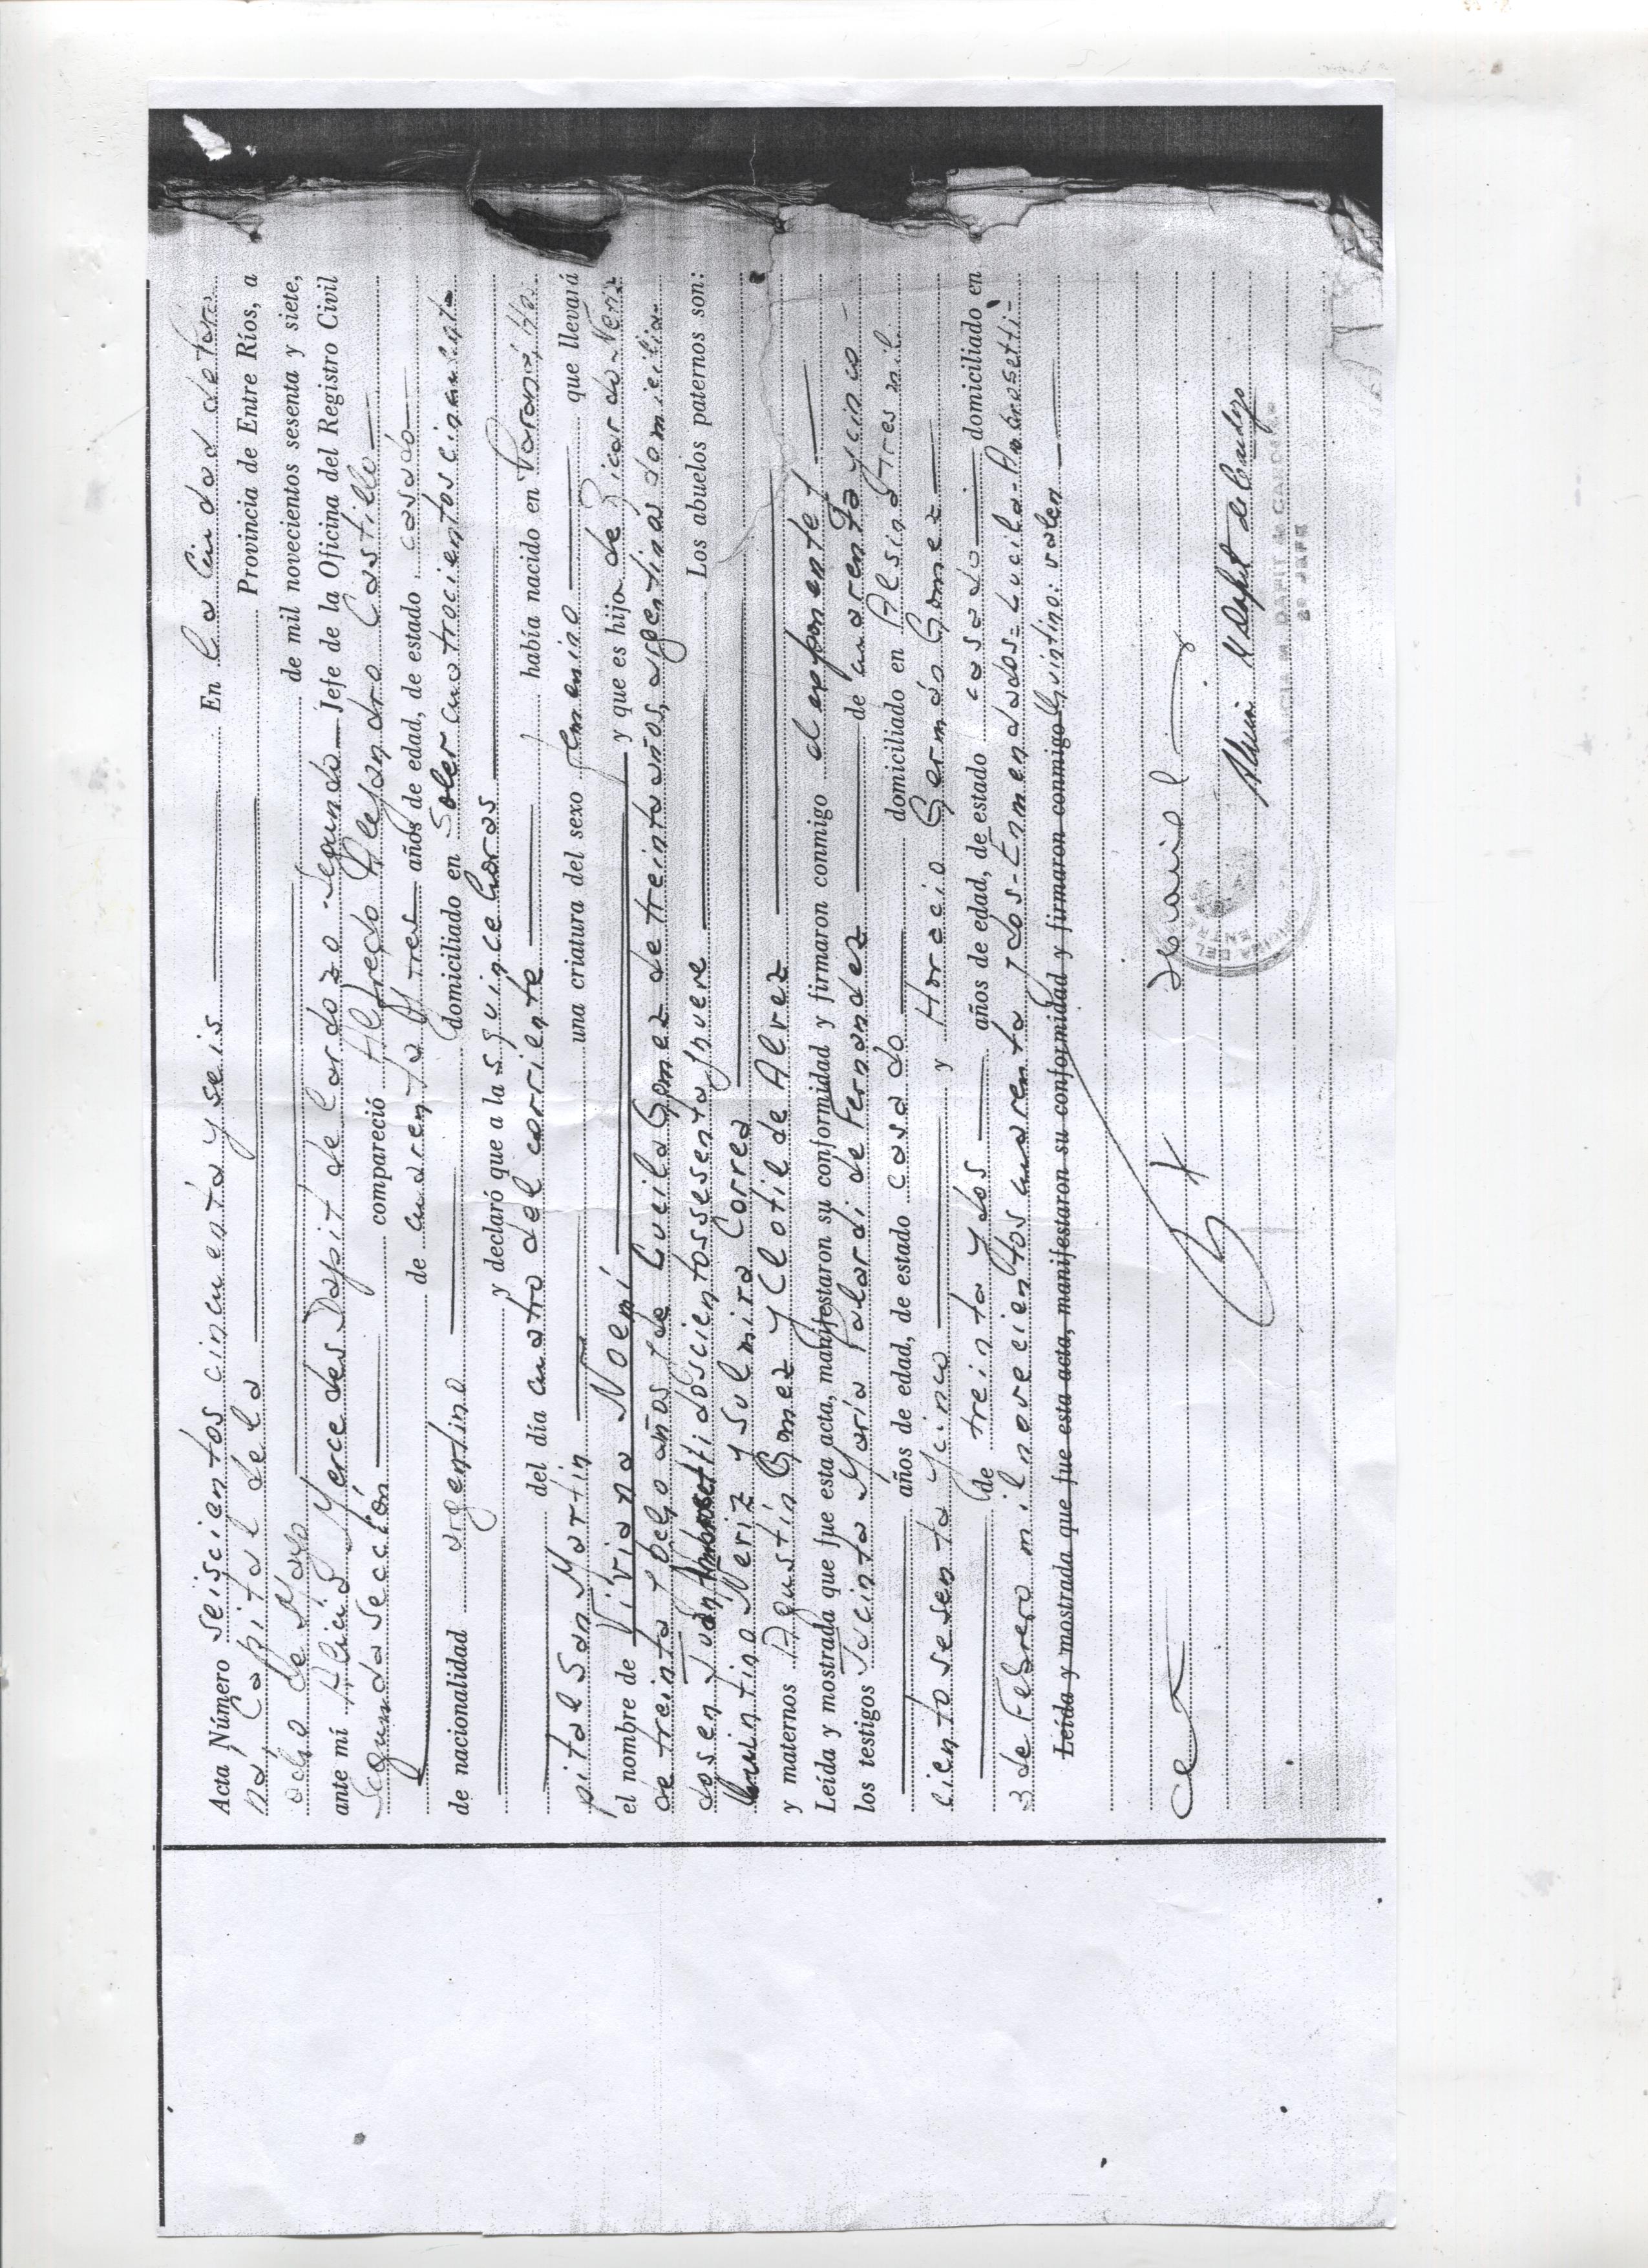 Acta Número seiscientos cincuenta y seis En la Ciudad de Para-
ná, Capital de la Provincia de Entre Ríos, a
ocho de Mayo de mil novecientos sesenta y siete,
ante mí Alicia Mercedes Dapit de Cardozo - Segundo Jefe de la Oficina del Registro Civil
Segunda Sección compareció Alfredo Alejandro Castillo
de cuarenta y tres años de edad, de estado casado
de nacionalidad argentino domiciliado en Soler cuatrocientos cincuenta
y declaró que a las quince horas
del día cuatro del corriente había nacido en Paraná, Hos-
pital San Martín una criatura del sexo femenino que llevará
el nombre de Viviana Noemí y que es hijo de Ricardo Neriz
de treinta y ocho años y de Lucila Gomez de treinta años, argentinos domicilia-
dos en Juan Ambrosetti doscientos sesenta y nueve Los abuelos paternos son:
Quintino Neriz y Sulmira Correa
y maternos Agustín Gomez y Clotilde Alvez
Leída y mostrada que fue esta acta, manifestaron su conformidad y firmaron conmigo el exponente y
los testigos Jacinta María Palardi de Fernandez de cuarenta y cinco -
años de edad, de estado casado domiciliado en Alsina tres mil
ciento sesenta y cinco y Horacio Germán Gomez
de treinta y dos años de edad, de estado casado domiciliado en
3 de Febrero mil novecientos cuarenta y dos - Enmendados= Lucila - Ambrosetti-
Leída y mostrada que fue esta acta, manifestaron su conformidad y firmaron conmigo Quintino: valen
Alicia M Dapit de Cardozo
ALICIA M. DAPIT de CARDOZO
2º JEFE